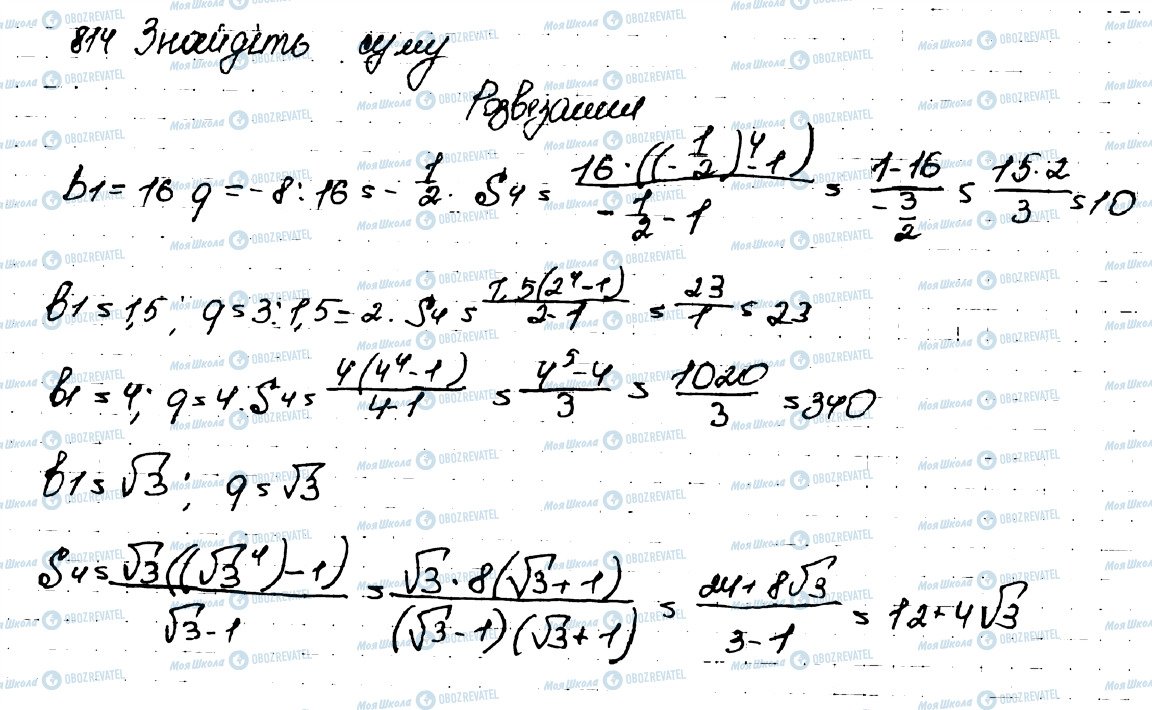 814 Знайдіть суму
Розвезання
b1 = 16 q = -8 : 16 = -1/2. S4 = 16·((-1/2)^4-1) / (-1/2 - 1) = (1-16) / (-3/2) = 15·2/3 = 10
b1 = 1,5; q = 3:1,5 = 2. S4 = 1,5(2^4-1) / (2-1) = 23/1 = 23
b1 = 4; q = 4. S4 = 4(4^4-1) / (4-1) = (4^5-4)/3 = 1020/3 = 340
b1 = √3; q = √3
S4 = √3((√3^4)-1) / (√3-1) = √3·8(√3+1) / (√3-1)(√3+1) = (24+8√3) / (3-1) = 12+4√3